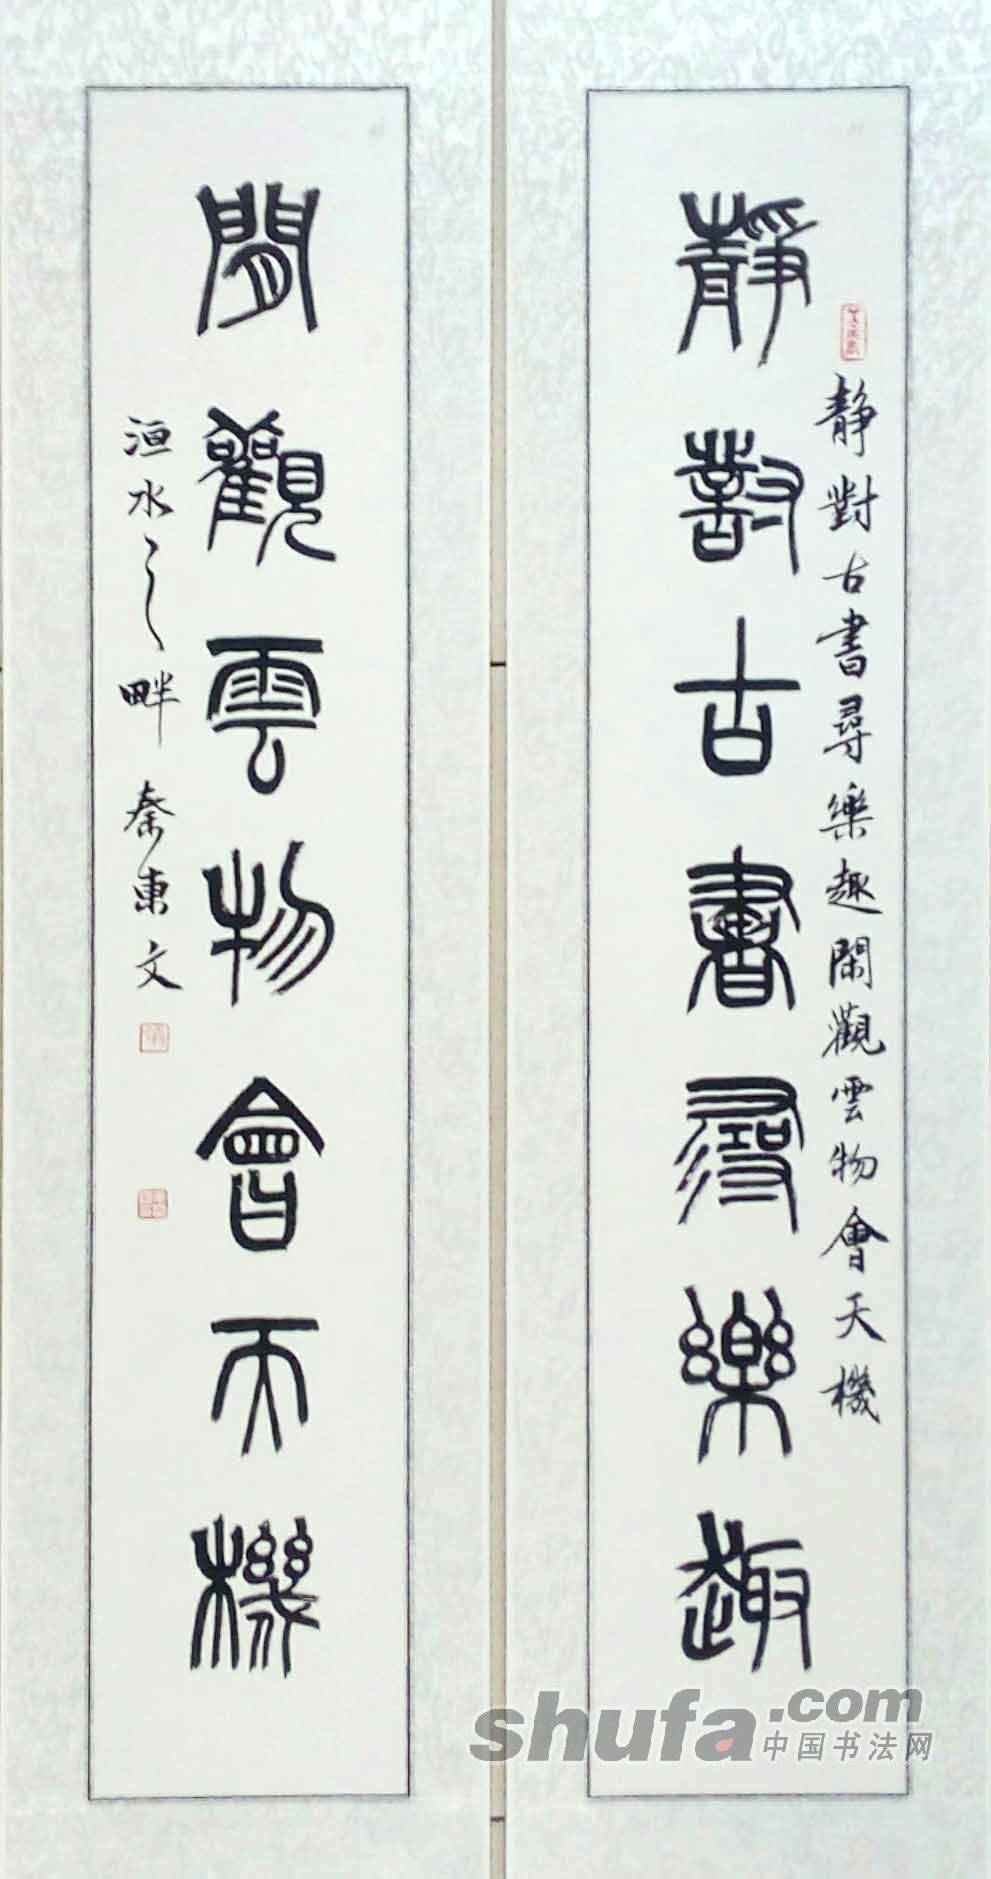 靜對古書尋樂趣
靜對古書尋樂趣閑觀雲物會天機
閒觀雲物會天機
洹水之畔秦東文
shufa.com
中国书法网